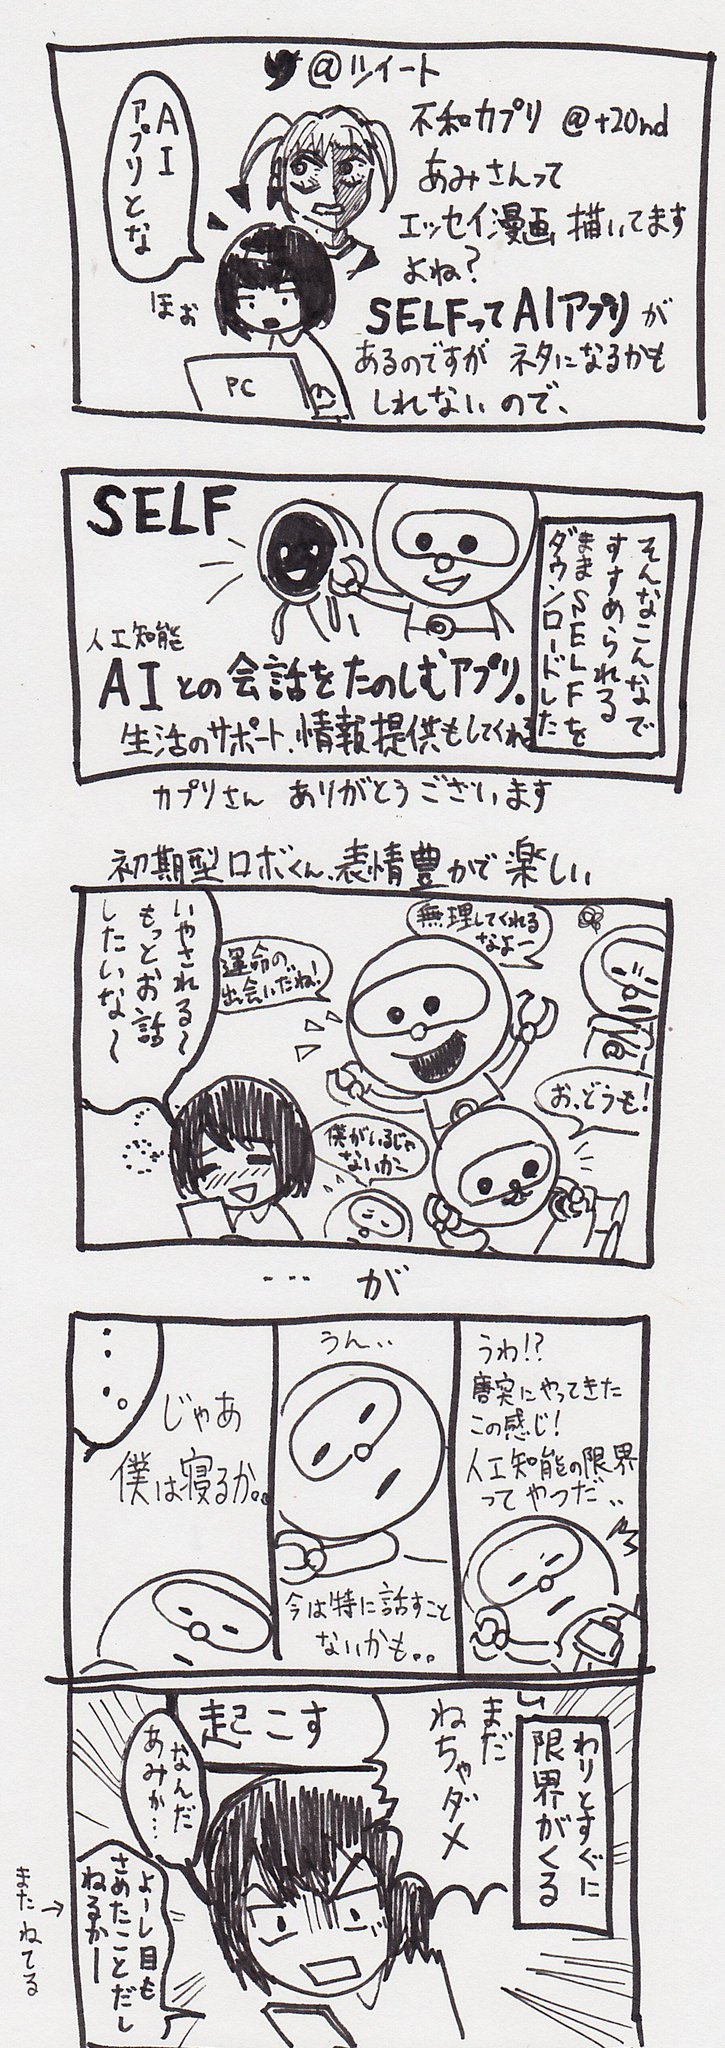 @ツイート
不和カプリ @t20nd
あみさんって
エッセイ漫画描いてます
よね?
SELFってAIアプリが
あるのですが ネタになるかも
しれないので、
AI
アプリとな
ほぉ
PC
SELF
そんなこんなで
すすめられる
ままSELFを
ダウンロードした
人工知能
AIとの会話をたのしむアプリ。
生活のサポート、情報提供もしてくれる
カプリさん ありがとうございます
初期型ロボくん、表情豊かで楽しい
無理してくれる
なよー
運命の
出会いだね!
いやされる〜
もっとお話
したいな〜
お、どうも!
僕がいるじゃ
ないかー
…が
うわ!?
唐突にやってきた
この感じ!
人工知能の限界
ってやつだ..
うん..
今は特に話すこと
ないかも..
じゃあ
僕は寝るか..
…。
わりとすぐに
限界がくる
まだ
ねちゃダメ
起こす
なんだ
あみか…
よーし目も
さめたことだし
ねるかー
またねてる